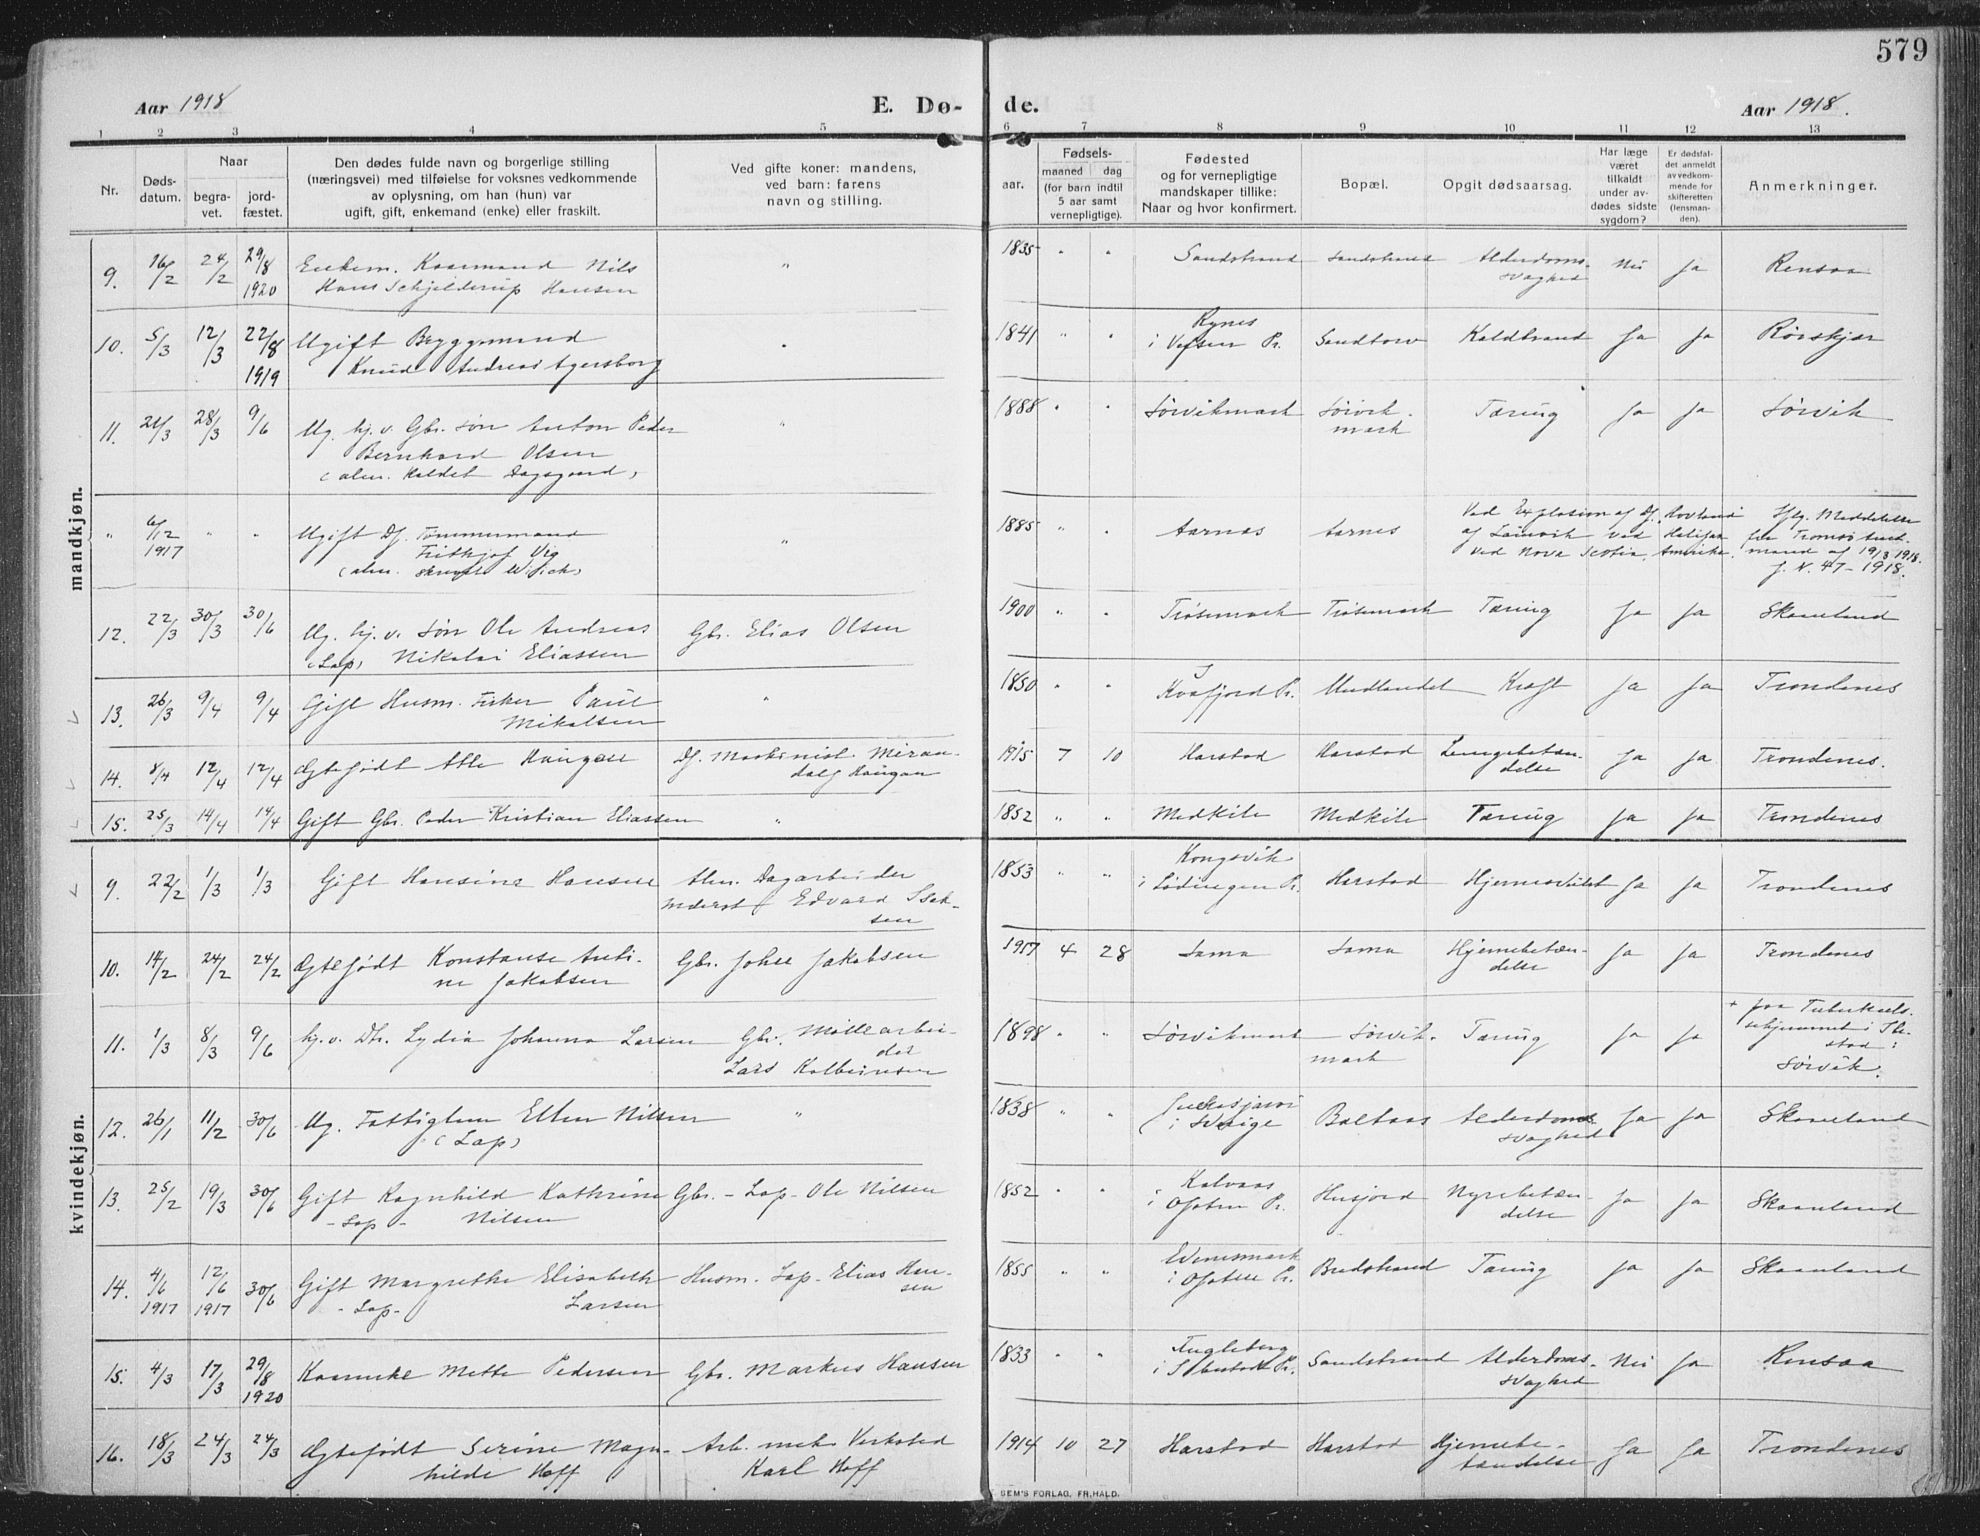 579
Aar 1918
E. Dø-
de.
Aar 1918.
1 2 3 4 5 6 7 8 9 10 11 12 13
Nr.
Døds-
datum.
Naar
begra-
vet.
jord-
fæstet.
Den dødes fulde navn og borgerlige stilling
(næringsvei) med tilføielse for voksnes vedkommende
av oplysning, om han (hun) var
ugift, gift, enkemand (enke) eller fraskilt.
Ved gifte koner: mandens,
ved barn: farens
navn og stilling.
Fødsels-
aar.
maaned
dag
(for barn indtil
5 aar samt
vernepligtige).
Fødested
og for vernepligtige
mandskaper tillike:
Naar og hvor konfirmert.
Bopæl.
Opgit dødsaarsag.
Har læge
været
tilkaldt
under av-
dødes sidste
sygdom?
Er dødsfal-
det anmeldt
av vedkom-
mende for
skifteretten
(lensman-
den).
Anmerkninger.
mandkjøn.
9. 16/2 24/2 29/8 Enkem. Kaarmand Nils " 1835 " " Sandstrand Sandstrand Alderdoms- Nei Ja Rensaa
1920 Hans Schjelderup Hansen svaghed
10. 5/3 12/3 22/8 Ugift Byggmand " 1841 " " Rynes Sandtorv Koldbrand Ja Ja Rørskjær
1919 Knud Andreas Agersborg i Vefsen Pr.
11. 21/3 28/3 9/6 Ug. hj.v. Gbr. søn Anton Peder " 1888 " " Sørvikmark Sørvik- Tæring Ja Ja Sørvik
Bernhard Olsen mark
(alm. kaldet Dagsgaard)
" 6/12 " " Ugift Df. Tømmermand " 1885 " " Aarnes Aarnes Ved Explosion af Df. Hovland Iflg. Meddelelse
1917 Frithjof Vig af Larvik ved Halifax fra Tromsø Amt-
(alm. skrevet Wick) ved Nova Scotia, Amerika. mand af 19/3 1918.
J. N. 47 - 1918.
12. 22/3 30/3 30/6 Ug. hj.v. søn Ole Andreas Gbr. Elias Olsen 1900 " " Trøsemark Trøsemark Tæring Ja Ja Skaanland
(Lap) Nikolai Eliassen
13. 26/3 9/4 9/4 Gift Husm. Fisker Paul " 1850 " " Kvæfjord Pr. Undlandet Kræft Ja Ja Trondenes
Mikalsen
14. 8/4 12/4 12/4 Ægtefødt Atle Haugan Df. Maskinist Meran- 1915 7 10 Harstad Harstad Lungebetæn- Ja Ja Trondenes.
dalf Haugan delse
15. 25/3 14/4 14/4 Gift Gbr. Peder Kristian Eliassen " 1852 " " Medkile Medkile Tæring Ja Ja Trondenes
kvindekjøn.
9. 22/2 1/3 1/3 Gift Hansine Hansen Alm. Dagarbeider 1853 " " Kongsvik Harstad Hjernesvulst Ja Ja Trondenes
Edvard Isak- i Lødingen Pr.
sen
10. 14/2 24/2 24/2 Ægtefødt Konstanse Anti- Gbr. Johee Jakobsen 1917 4 28 Sama Sama Hjernebetæn- Ja Ja Trondenes
ne Jakobsen delse
11. 1/3 8/3 9/6 hj.v. Dtr. Lydia Johanna Larsen Gbr. Møllearbei- 1898 " " Sørvikmark Sørvik- Tæring Ja Ja + paa Tuberkuls-
der mark ehjemmet i
Lars Kolbeinsen Sørvik.
12. 26/1 11/2 30/6 Ug. Fattiglem Ellen Nilsen " 1838 " " Jukkasjærvi Baltaas Alderdoms- Ja Ja Skaanland
(Lap) i Sverige svaghed
13. 25/2 19/3 30/6 Gift Ragnhild Kathrine Gbr. - Lap - Ole Nilsen 1852 " " Kalvaas Husjord Nyrebetæn- Ja Ja Skaanland
- Lap - Nilsen i Ofoten Pr. delse
14. 4/6 12/6 30/6 Gift Margrethe Elisabeth Husm. Lap - Elias Han- 1855 " " Evenesmark Budstrand Tæring Ja Ja Skaanland
1917 1917 - Lap - Larsen sen i Ofoten Pr.
15. 4/3 17/3 29/8 Kaarenke Mette Pedersen Gbr. Markus Hansen 1833 " " Fugleberg Sandstrand Alderdoms- Nei Ja Rensaa
1920 i Ibestad Pr. svaghed
16. 18/3 24/3 24/3 Ægtefødt Serine Magn- Arb. mek. Verksted 1914 10 27 Harstad Harstad Hjernebe- Ja Ja Trondenes
hilde Hoff Karl Hoff tændelse
SEM'S FORLAG, FR.HALD.